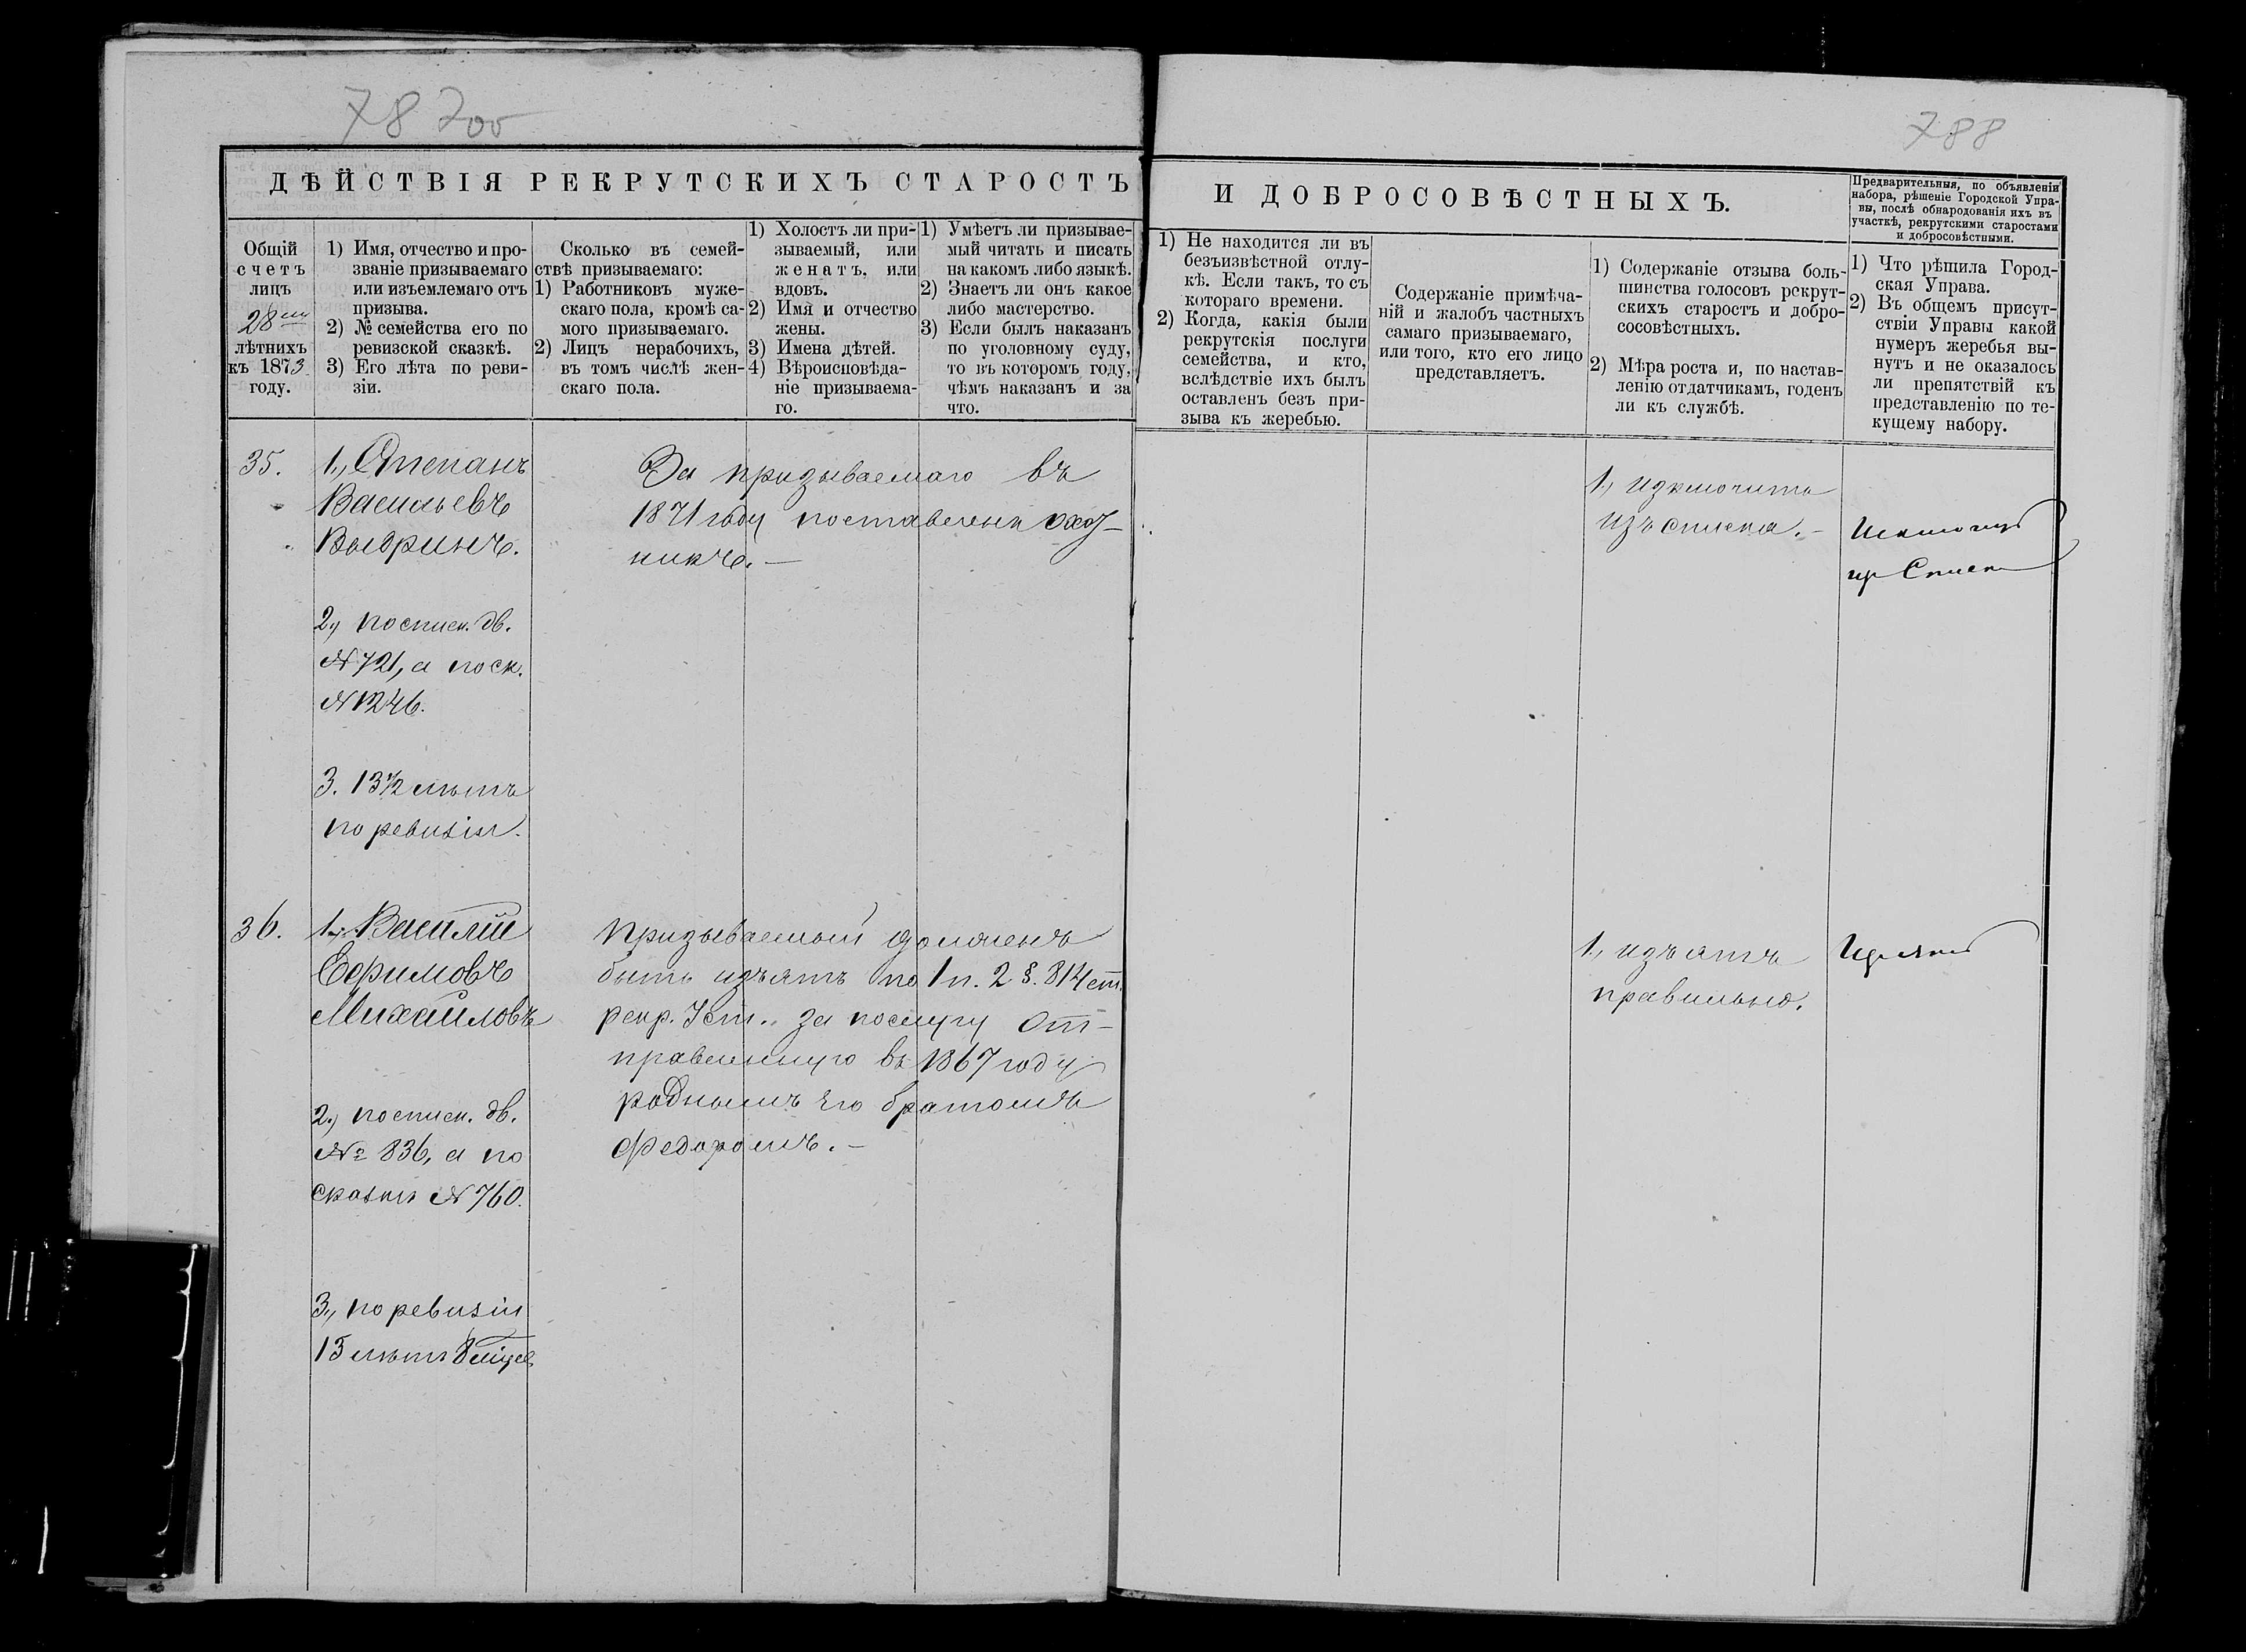 78 700
788
ДѢЙСТВІЯ РЕКРУТСКИХЪ СТАРОСТЪ
И ДОБРОСОВѢСТНЫХЪ.
Предварительныя, по объявленіи
набора, рѣшеніе Городской Упра-
вы, послѣ обнародованія ихъ въ
участкѣ, рекрутскими старостами
и добросовѣстными.
Общій
счетъ
лицъ
28ми
лѣтнихъ
къ 1873
году.
1) Имя, отчество и про-
званіе призываемаго
или изъемлемаго отъ
призыва.
2) № семейства его по
ревизской сказкѣ.
3) Его лѣта по реви-
зіи.
Сколько въ семей-
ствѣ призываемаго:
1) Работниковъ муже-
скаго пола, кромѣ са-
мого призываемаго.
2) Лицъ нерабочихъ,
въ томъ числѣ жен-
скаго пола.
1) Холостъ ли при-
зываемый, или
женатъ, или
вдовъ.
2) Имя и отчество
жены.
3) Имена дѣтей.
4) Вѣроисповѣда-
ніе призываема-
го.
1) Умѣетъ ли призывае-
мый читать и писать
на какомъ либо языкѣ.
2) Знаетъ ли онъ какое
либо мастерство.
3) Если былъ наказанъ
по уголовному суду,
то въ которомъ году,
чѣмъ наказанъ и за
что.
1) Не находится ли въ
безъизвѣстной отлу-
кѣ. Если такъ, то съ
котораго времени.
2) Когда, какія были
рекрутскія послуги
семейства, и кто,
вслѣдствіе ихъ былъ
оставленъ безъ при-
зыва къ жеребью.
Содержаніе примѣча-
ній и жалобъ частныхъ
самаго призываемаго,
или того, кто его лицо
представляетъ.
1) Содержаніе отзыва боль-
шинства голосовъ рекрут-
скихъ старостъ и добро-
совѣстныхъ.
2) Мѣра роста и, по настав-
ленію отдатчикамъ, годенъ
ли къ службѣ.
1) Что рѣшила Город-
ская Управа.
2) Въ общемъ присут-
ствіи Управы какой
нумеръ жеребья вы-
нутъ и не оказалось
ли препятствій къ
представленію по те-
кущему набору.
35.
1., Степанъ
Васильевъ
Выдринъ.
2., по списк. дв.
№ 721, а по ск.
№ 1246.
3. 13½ лѣтъ
по ревизіи.
За призываемаго въ
1871 году поставленъ охот-
никъ. —
1., изключить
изъ списка. —
Исключить
изъ Списка
36.
1., Василій
Ефимовъ
Михайловъ
2., по списк. дв.
№ 836, а по
сказкѣ № 760.
3., по ревизіи
13 лѣтъ 8 мѣсяц.
Призываемый долженъ
быть изъятъ по 1 п. 2 §. 814 ст.
рекр. Уст. за послугу от-
правленную въ 1867 году
роднымъ его братомъ
Федоромъ. —
1., изъятъ
правильно.
Изъять